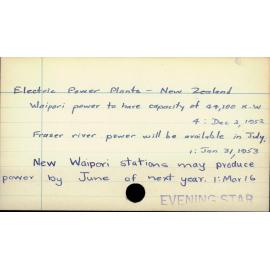 Electric Power Plants - New Zealand
Waipori power to have capacity of 44,100 K.W
4: Dec 2, 1952
Fraser river power will be available in July.
1: Jan 31, 1953
New Waipori stations may produce
power by June of next year. 1: Mar 16
EVENING STAR